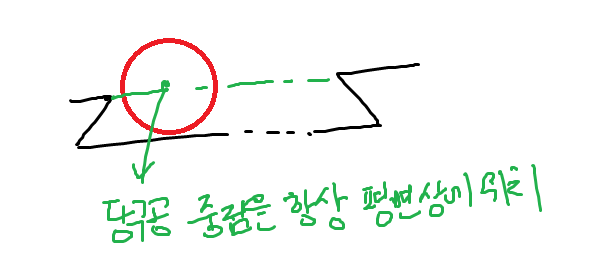 당구공 중점은 항상 평면상에 위치